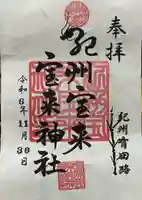 奉拝
紀州宝来
宝来神社
紀州有田路
令和6年11月30日